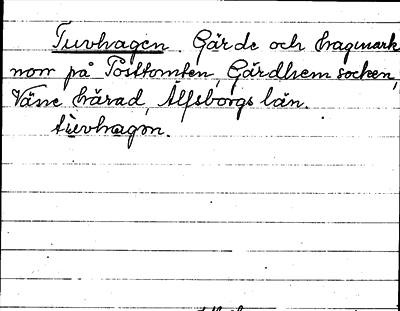 Tuvhagen. Gärde och hagmark
norr på Posttomten, Gärdhem socken,
Väne härad, Älfsborgs län.
tuvhagən.